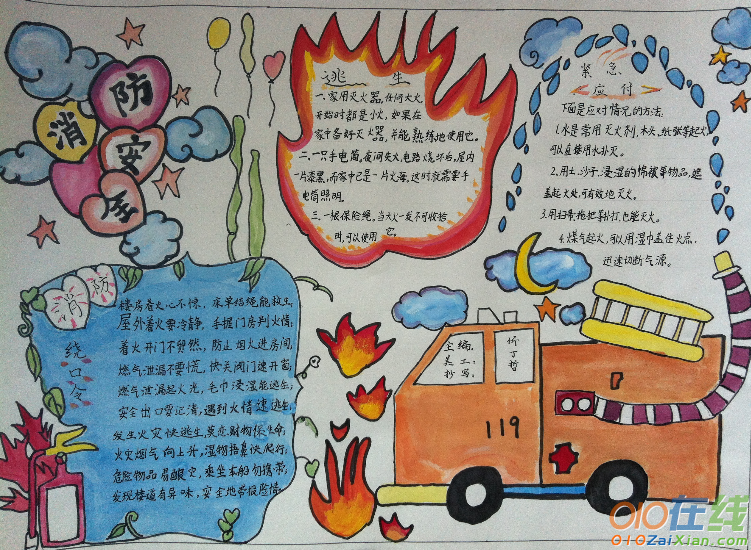 消防安全
逃生
一、家用灭火器，任何大火，
开始时都是小火，如果在
家中备好灭火器，并能熟练地使用它。
二、一只手电筒，夜间失火，电路烧坏后，屋内
一片漆黑，而家中已是一片火海，这时就需要手
电筒照明。
三、一根保险绳，当大火一发不可收拾
时，可以使用它。
紧急
应付
下面是应对情况的方法。
1.水是常用灭火剂，木头、纸张等起火，
可以直接用水扑灭。
2.用土、沙子、浸湿的棉被等物品，遮
盖起火处，可有效地灭火。
3.用扫帚、拖把等扑打，也能灭火。
4.煤气起火，可以用湿巾盖住火点，
迅速切断气源。
消防
绕口令
楼房着火心不惊，床单结绳能救生，
屋外着火要冷静，手握门房判火情，
着火开门不贸然，防止烟火进房间，
燃气泄漏不要慌，快关阀门速开窗，
燃气泄漏起火光，毛巾浸湿能逃生，
安全出口要记清，遇到火情速逃生，
发生火灾快逃生，莫恋财物保生命，
火灾烟气向上升，湿物捂鼻快爬行，
危险物品易酿灾，乘坐车船勿携带，
发现楼道有异味，安全地带报险情。
主编：
美工：
抄写：
119
010在线
010ZaiXian.com